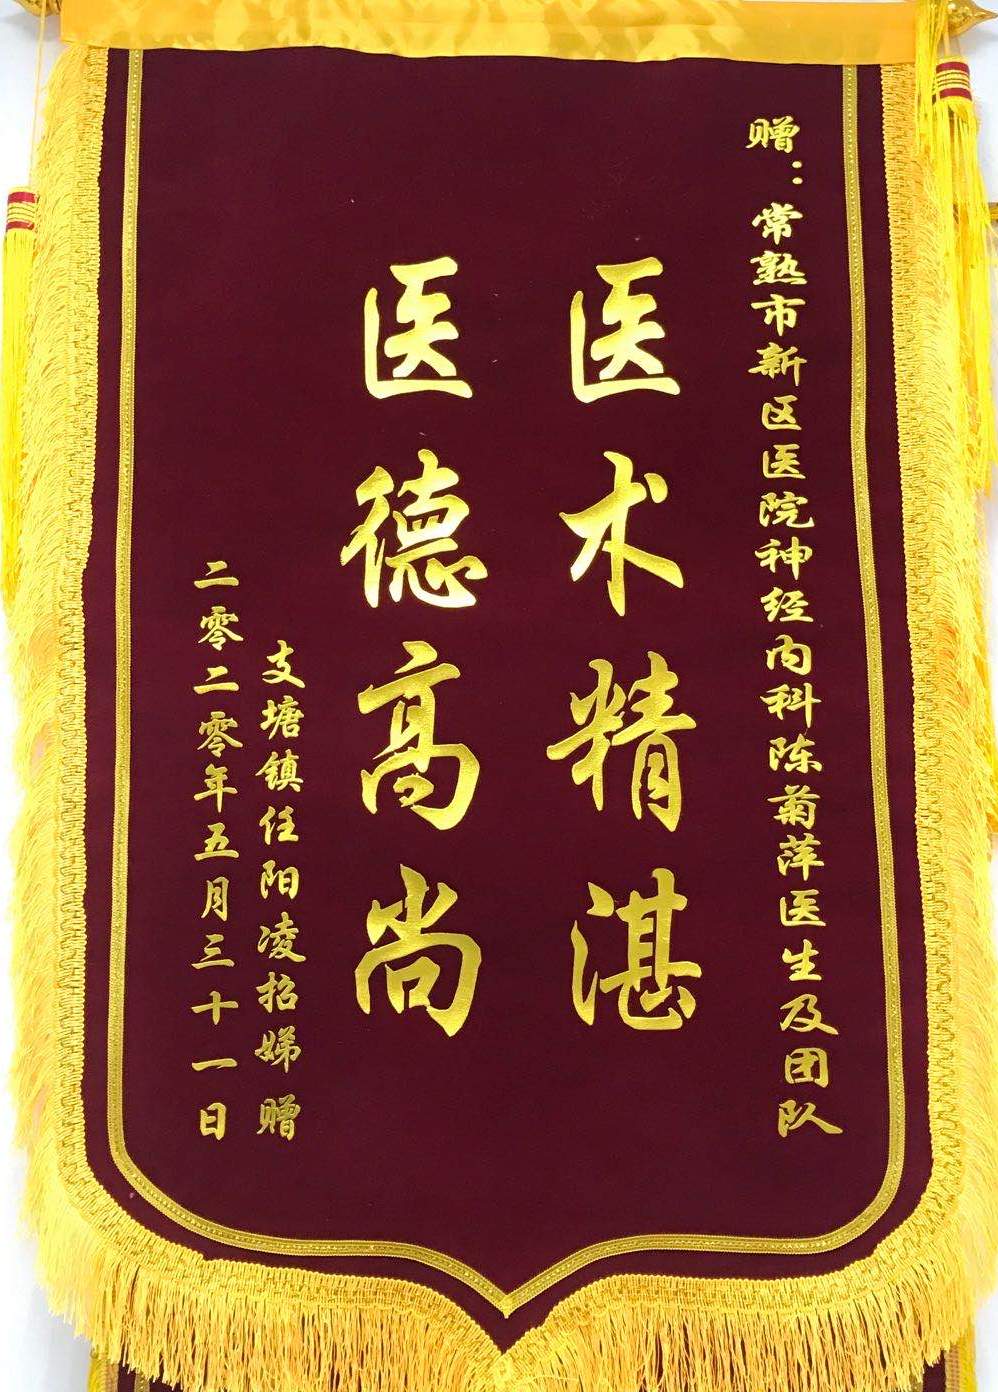 赠：常熟市新区医院神经内科陈菊萍医生及团队
医术精湛
医德高尚
支塘镇任阳凌招娣 赠
二零二零年五月三十一日